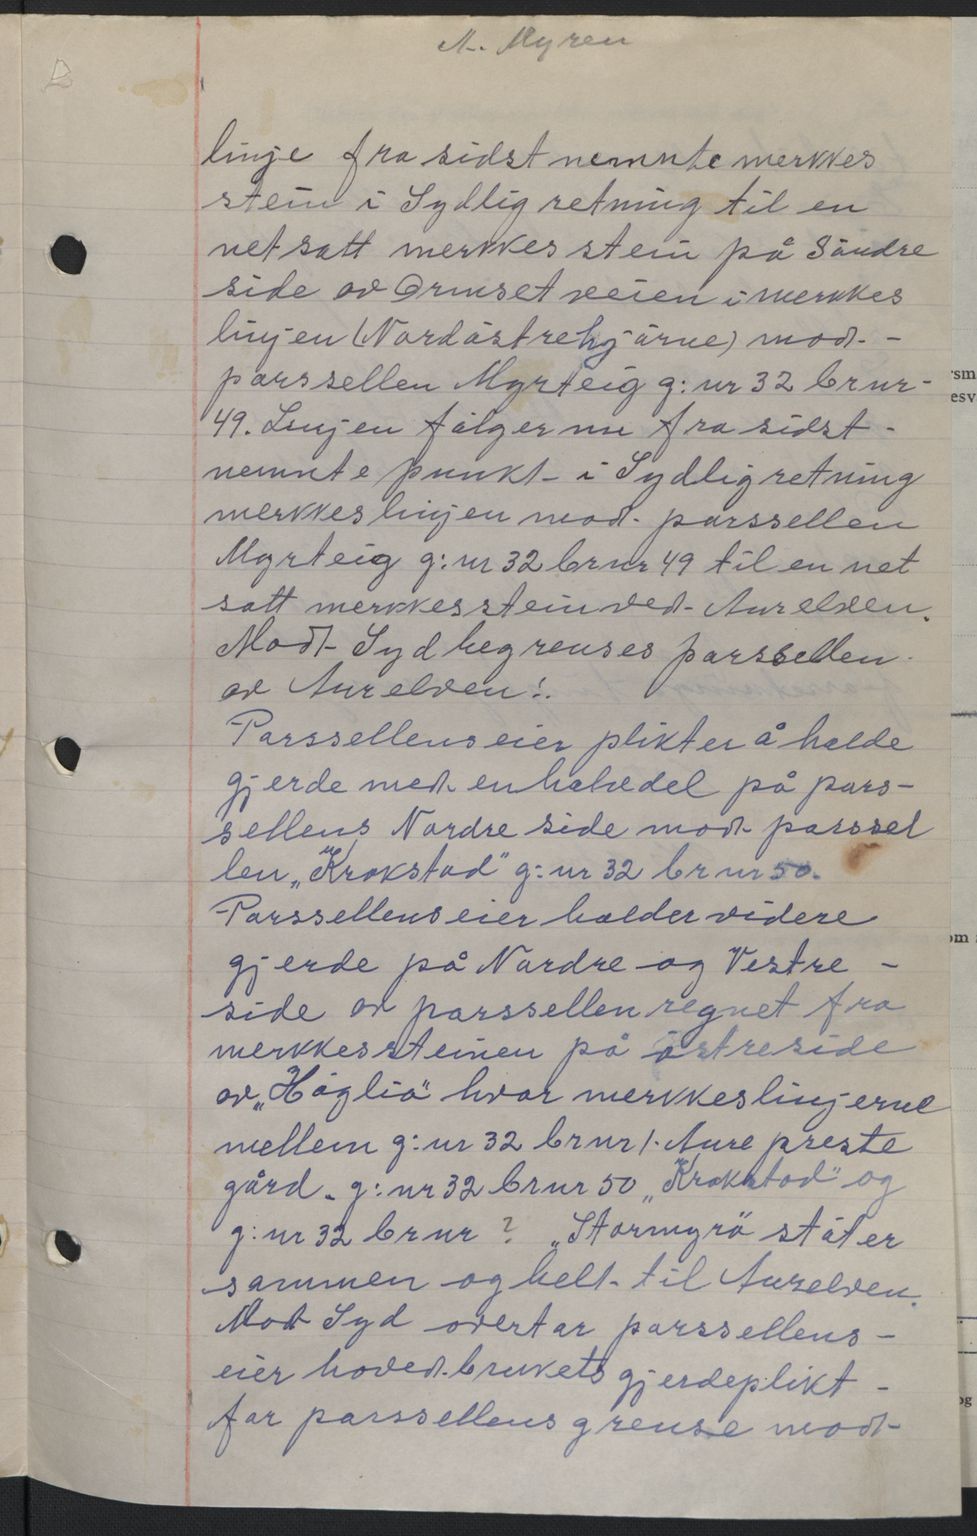 A. Myren
linje fra sidst nemnte merkkes
stein i Sydlig retning til en
netsatt merkkes stein på Söndre
side av Ormset veien i merkkes
linjen (Nordöstre hjörne) mod. -
parssellen Myrteig g: nr 32 brnr-
49. Linjen fölger nu fra sidst-
nemnte punkt i Sydlig retning
merkkeslinjen mod. parssellen
Myrteig g: nr 32 brnr 49 til en net
satt merkkesstein ved Aurelven.
Modt Syd begrenses parssellen
av Aurelven!.
Parssellens eier plikter å holde
gjerde med en halvdel på pars-
sellens Nordre side mod parssel
len „Krokstad" g: nr 32 br nr 50.
Parssellens eier holder videre
gjerde på Nordre og Vestre -
side av parssellen regnet fra
merkkessteinen på östreside
av „Höglia" hvor merkkeslinjerne
mellem g: nr 32 brnr 1. Aure preste
gård. g: nr 32 brnr 50 „Krokstad" og
g: nr 32 brnr ? „Stormyrö stöter
sammen og helt til Aurelven.
Mod Syd overtar parssellens -
eier hovedbrukets gjerdeplikt -
for parssellens grense mod-
'sm
esv
om
og